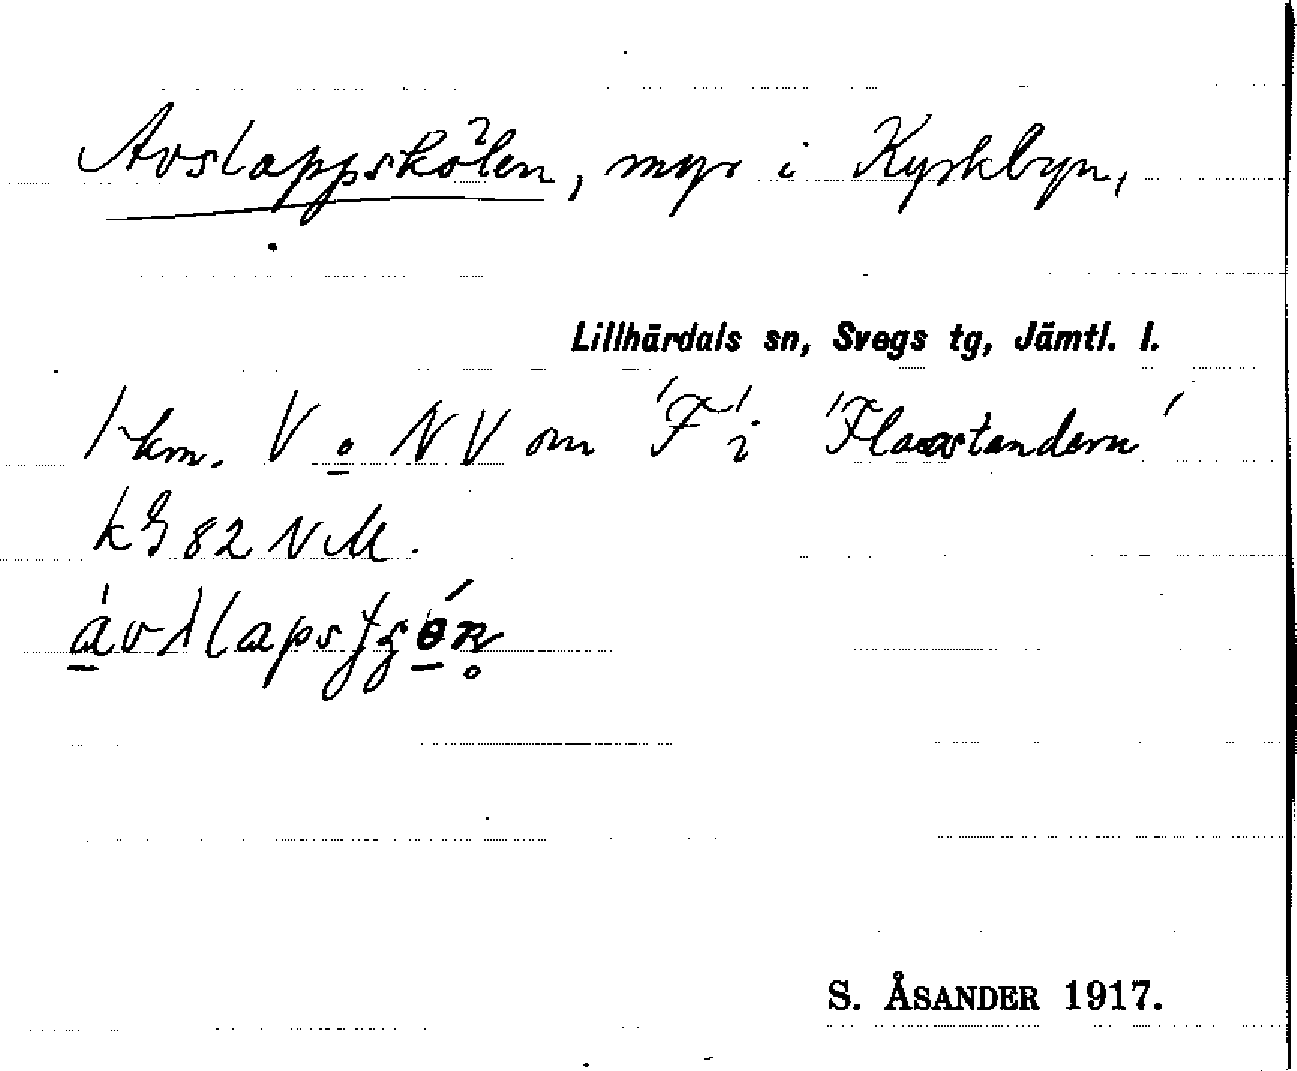 Avslappskölen, myr i Kyrkbyn,
Lillhärdals sn, Svegs tg, Jämtl. l.
1 km. V o NV om 'F' i 'Flaxstandern'
kg 82 NM.
S. ÅSANDER 1917.